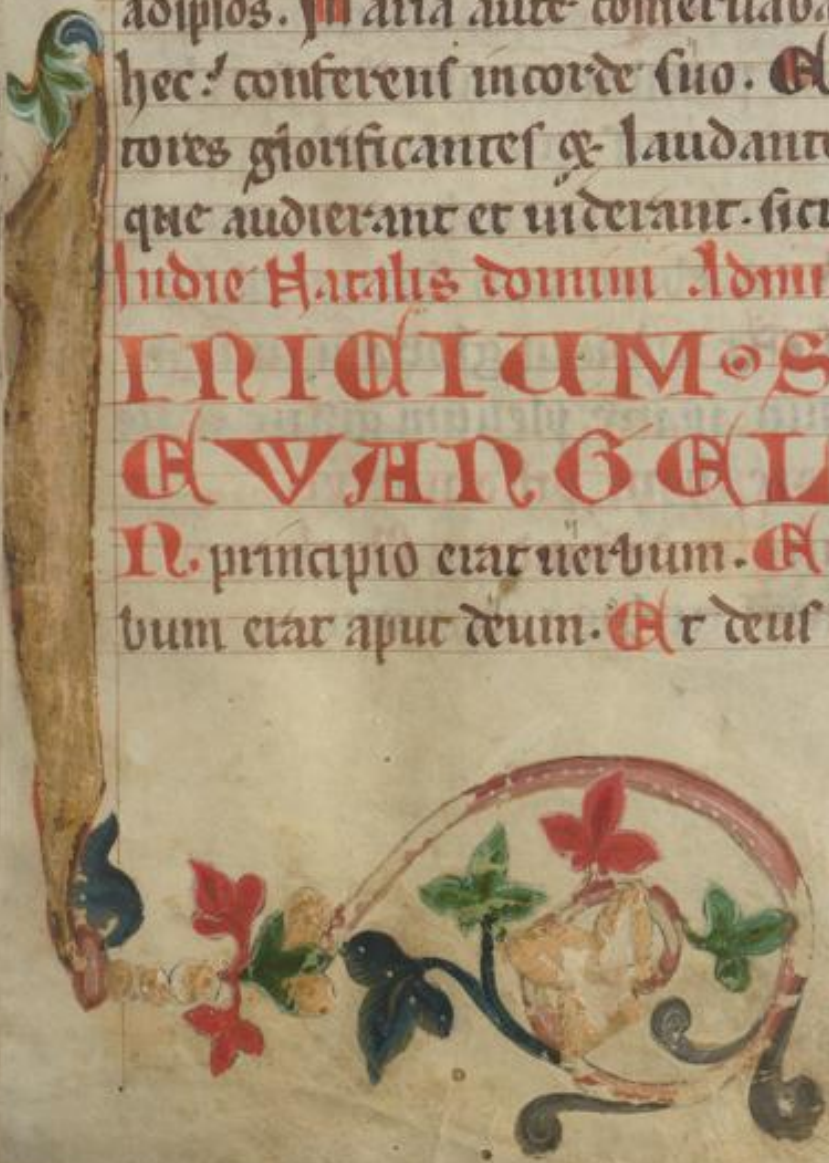 adipsos. Maria aute conseruaba
hec: conferens in corde suo. E
tores glorificantes & laudante
que audierant et uiderant. sicu
In die Natalis domini Ad mi
INICIUM S
EVANGEL
N. principio erat uerbum. E
bum erat aput deum. Et deus